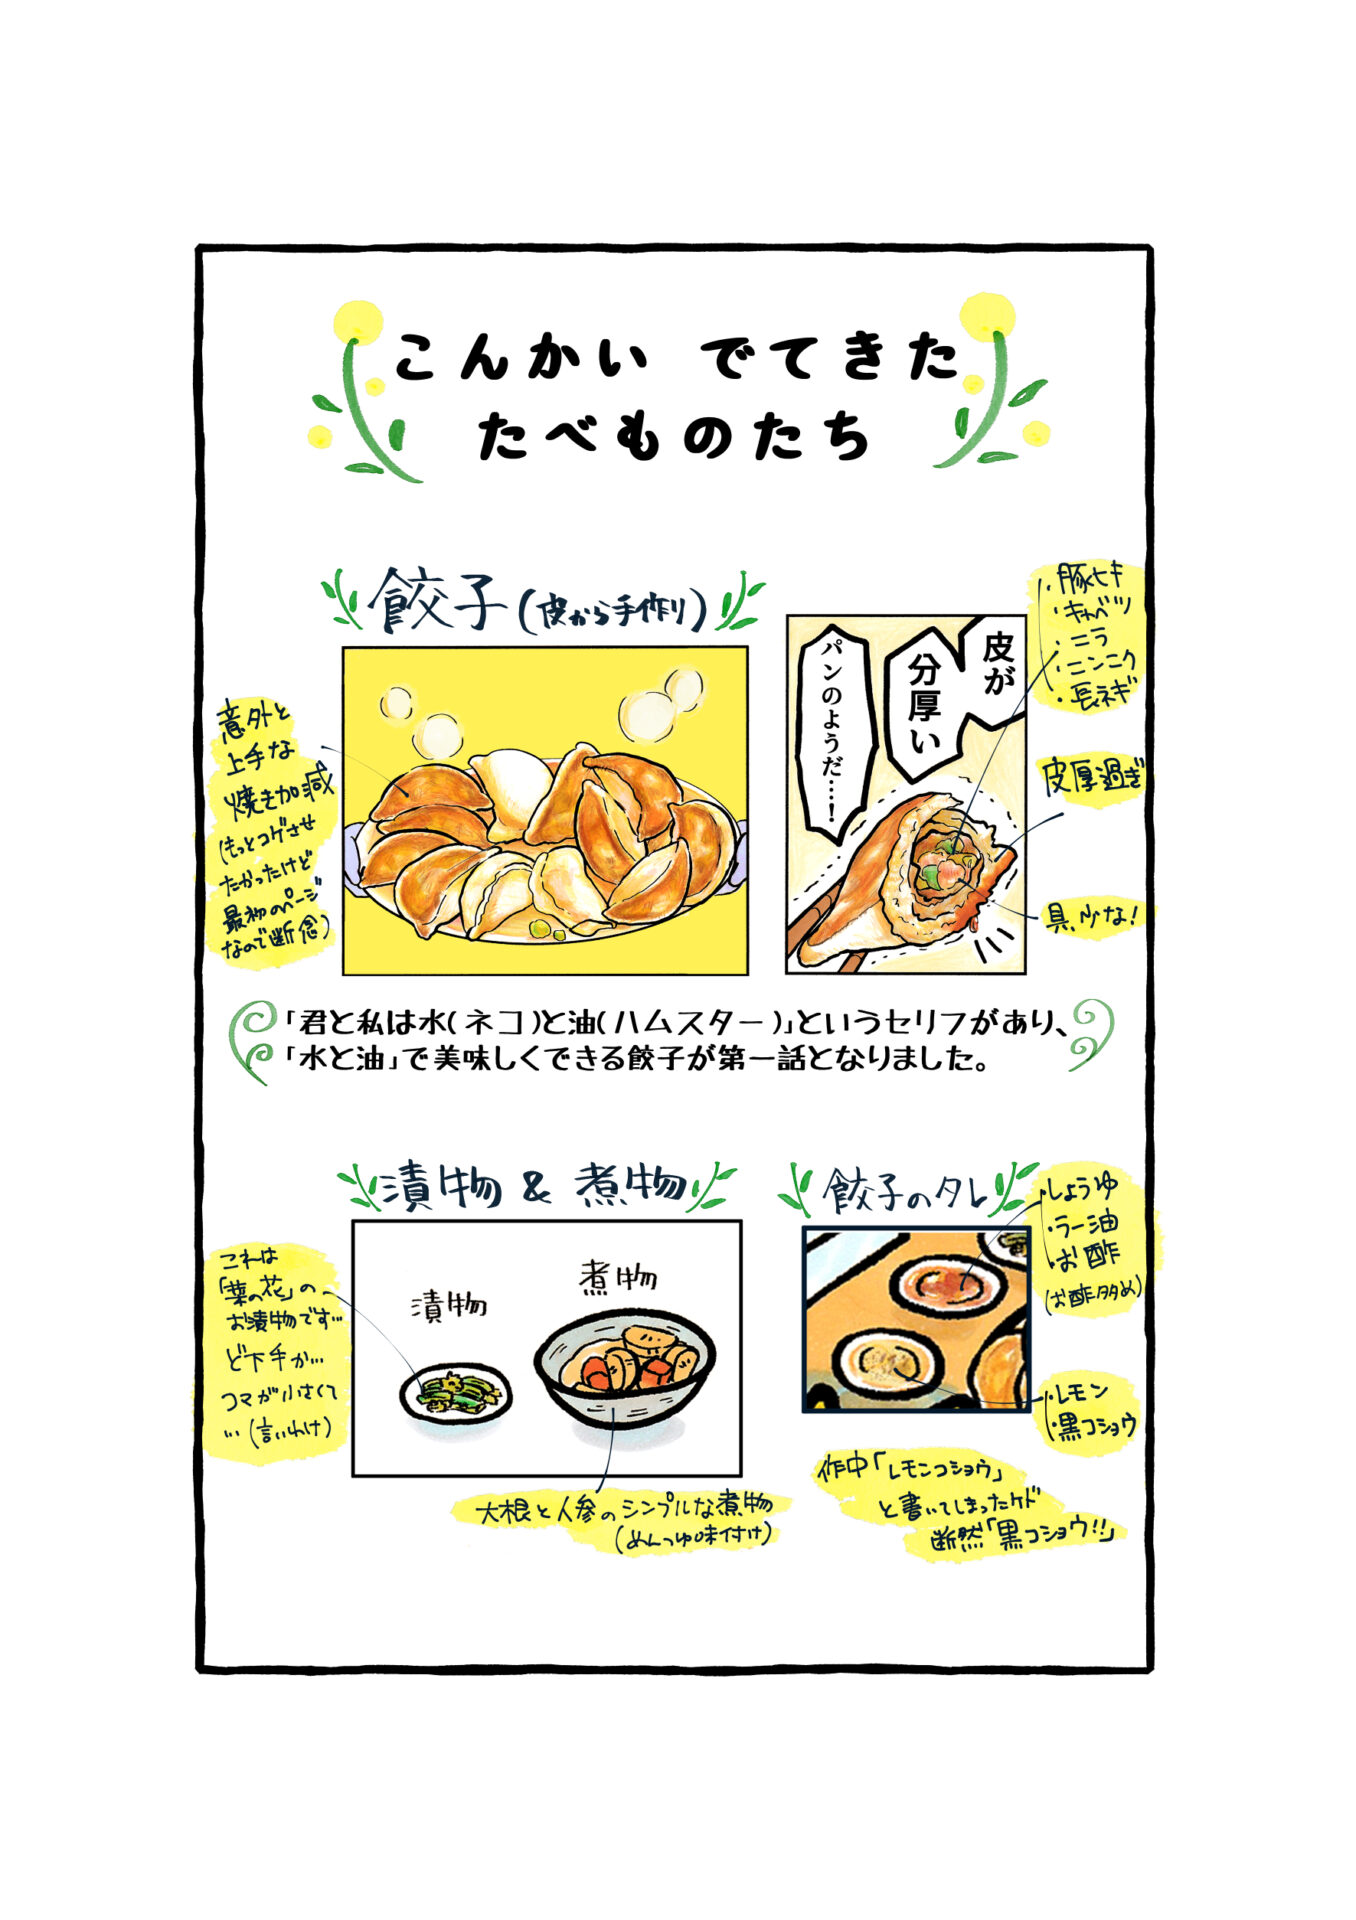 こんかい でてきた
たべものたち
餃子(皮から手作り)
意外と
上手な
焼き加減
(もっとコゲさせ
たかったけど
最初のページ
なので断念)
皮が
分厚い
パンのようだ…!
・豚ヒキ
・キャベツ
・ニラ
・ニンニク
・長ネギ
皮厚過ぎ
具、少な!
「君と私は水(ネコ)と油(ハムスター)」というセリフがあり、
「水と油」で美味しくできる餃子が第一話となりました。
漬物 & 煮物
これは
「菜の花」の
お漬物です…
ど下手か…
コマが小さくて
…(言いわけ)
漬物
煮物
大根と人参のシンプルな煮物
(めんつゆ味付け)
餃子のタレ
・しょうゆ
・ラー油
・お酢
(お酢多め)
・レモン
・黒コショウ
作中「レモンコショウ」
と書いてしまったケド
断然「黒コショウ!!」